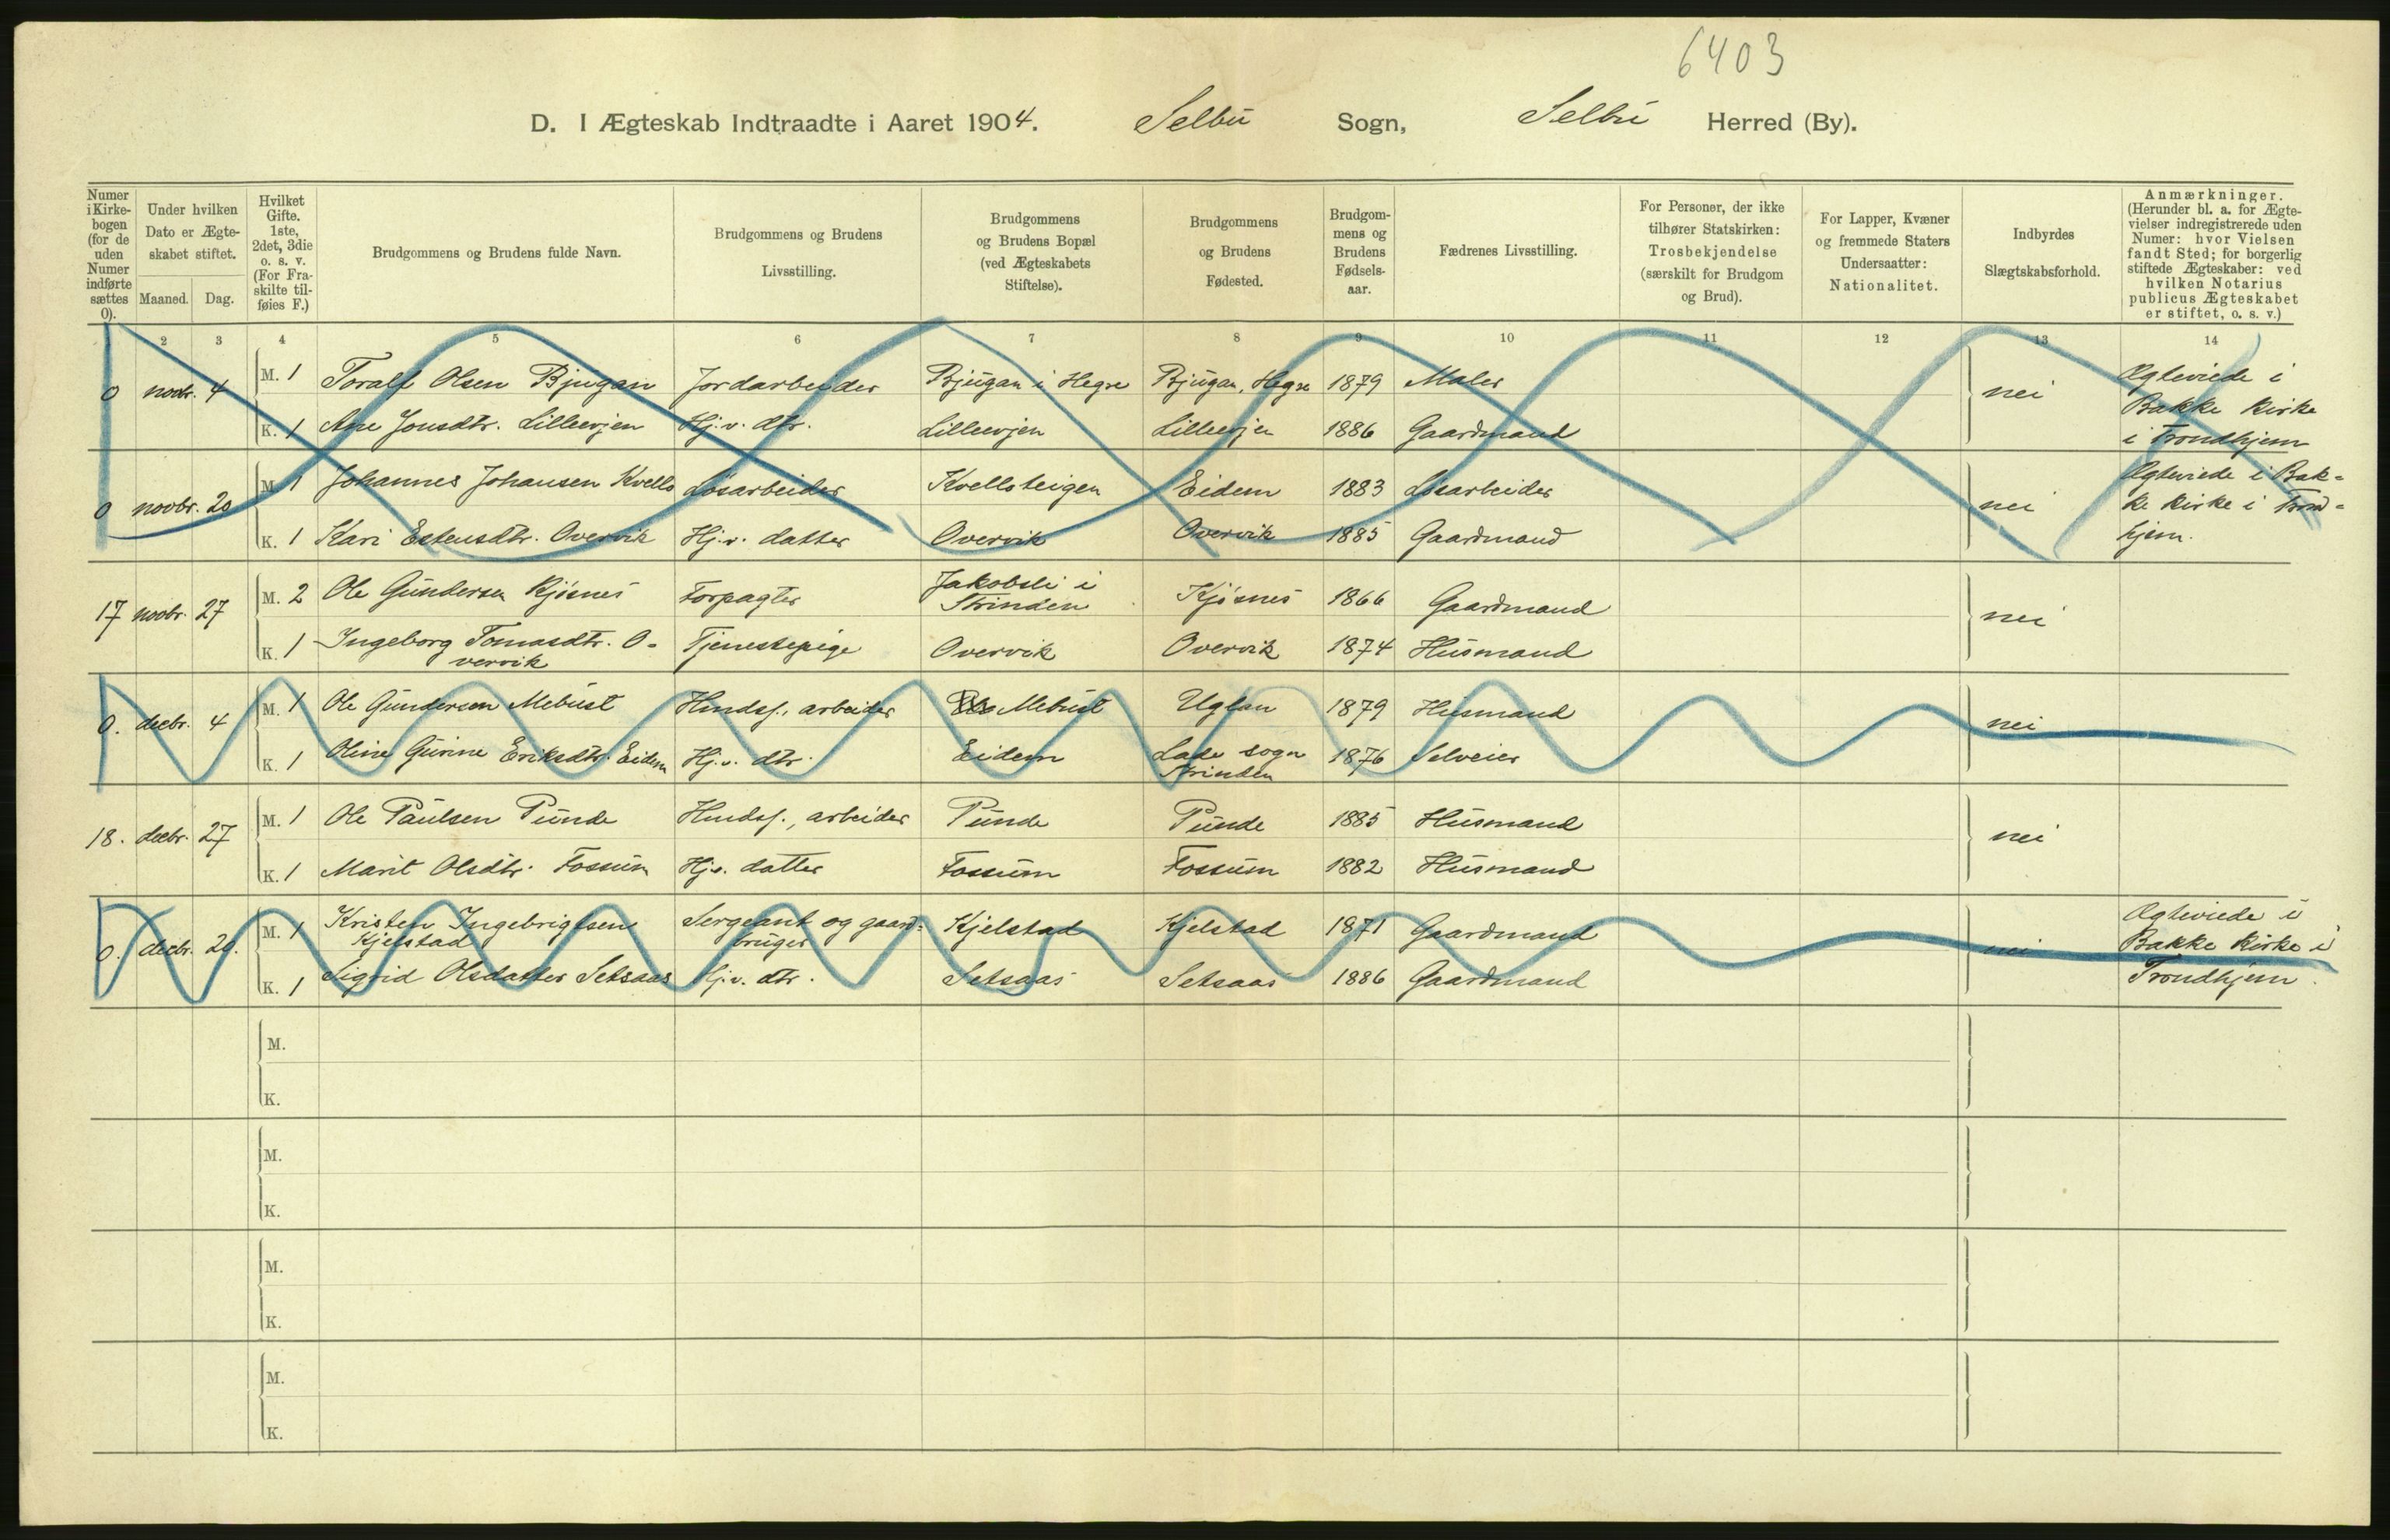 6403
D. I Ægteskab Indtraadte i Aaret 1904. Selbu Sogn, Selbu Herred (By).
Numer i Kirke-bogen (for de uden Numer indførte sættes 0).
Under hvilken Dato er Ægte-skabet stiftet.
Maaned. Dag.
Hvilket Gifte. 1ste, 2det, 3die o. s. v. (For Fra-skilte til-føies F.)
Brudgommens og Brudens fulde Navn.
Brudgommens og Brudens Livsstilling.
Brudgommens og Brudens Bopæl (ved Ægteskabets Stiftelse).
Brudgommens og Brudens Fødested.
Brudgom-mens og Brudens Fødsels-aar.
Fædrenes Livsstilling.
For Personer, der ikke tilhører Statskirken: Trosbekjendelse (særskilt for Brudgom og Brud).
For Lapper, Kvæner og fremmede Staters Undersaatter: Nationalitet.
Indbyrdes Slægtskabsforhold.
Anmærkninger. (Herunder bl. a. for Ægte-vielser indregistrerede uden Numer: hvor Vielsen fandt Sted; for borgerlig stiftede Ægteskaber: ved hvilken Notarius publicus Ægteskabet er stiftet, o. s. v.)
2 3 4 5 6 7 8 9 10 11 12 13 14
0 novbr. 4 M. 1 Toralf Olsen Bjugan Jordarbeider Bjugan i Hegre Bjugan, Hegre 1879 Maler nei Ægteviede i Bakke kirke i Trondhjem
K. 1 Ane Jonsdtr. Lilleevjen Hj.v. dtr. Lilleevjen Lilleevjen 1886 Gaardmand
0 novbr. 20 M. 1 Johannes Johansen Kvello Løsarbeider Kvellsteigen Eidem 1883 Løsarbeider nei Ægteviede i Bak-ke kirke i Trond-hjem.
K. 1 Kari Estensdtr. Overvik Hj.v. datter Overvik Overvik 1885 Gaardmand
17 novbr. 27 M. 2 Ole Gundersen Kjøsnes Forpagter Jakobsli i Strinden Kjøsnes 1866 Gaardmand nei
K. 1 Ingeborg Tomasdtr. O-vervik Tjenestepige Overvik Overvik 1874 Husmand
0. decbr. 4 M. 1 Ole Gundersen Mebust Husdsf., arbeider Mebust Uglan 1879 Husmand nei
K. 1 Oline Gurine Eriksdtr. Eidem Hj.v. dtr. Eidem Lade sogn Strinden 1876 Selveier
18. decbr. 27 M. 1 Ole Paulsen Punde Husdsf., arbeider Punde Punde 1885 Husmand nei
K. 1 Marit Olsdtr. Fossum Hj.v. datter Fossum Fossum 1882 Husmand
0. decbr. 29. M. 1 Kristen Ingebrigtsen Kjelstad Sergeant og gaard-bruger Kjelstad Kjelstad 1871 Gaardmand nei Ægteviede i Bakke kirke i Trondhjem.
K. 1 Sigrid Olsdatter Setsaas Hj.v. dtr. Setsaas Setsaas 1886 Gaardmand
M.
K.
M.
K.
M.
K.
M.
K.